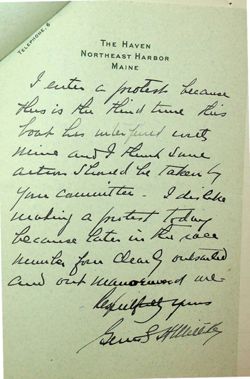 TELEPHONE, 6
THE HAVEN
NORTHEAST HARBOR
MAINE
I enter a protest because
this is the third time this
boat has interfered with
mine and I think some
action should be taken by
your committee - I dislike
making a protest today
because later in the race
number four clearly outsailed
and out manoeuvred me -
Respectfully yours